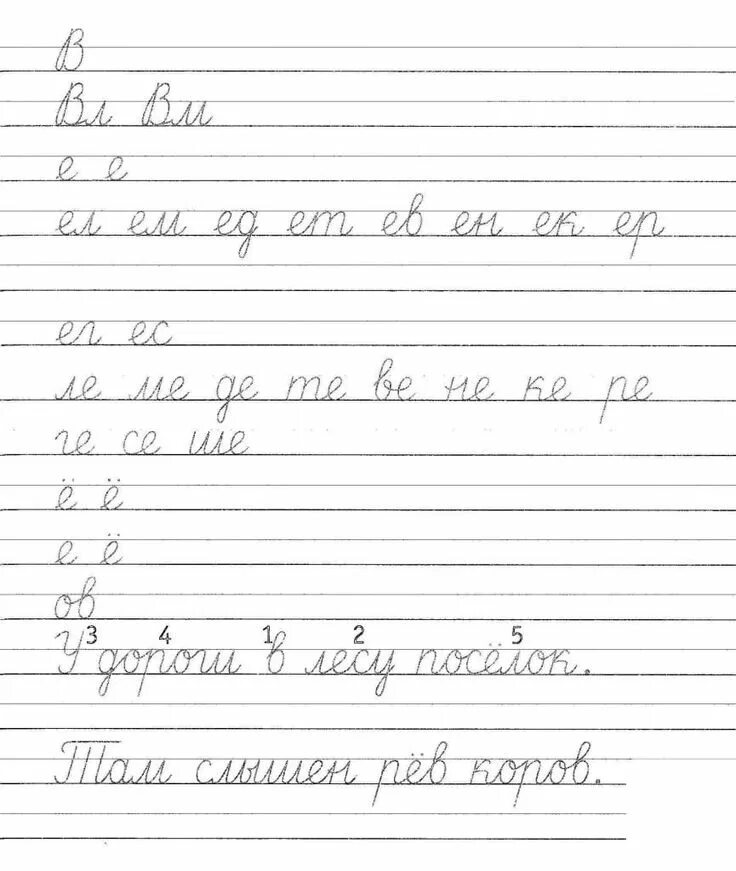 В
Вл Вм
е е
ел ем ед ет ев ен ек ер
ег ес
ле ме де те ве не ке ре
ге се ше
ё ё
е ё
ов
3 4 1 2 5
У дороги в лесу посёлок.
Там слышен рёв коров.